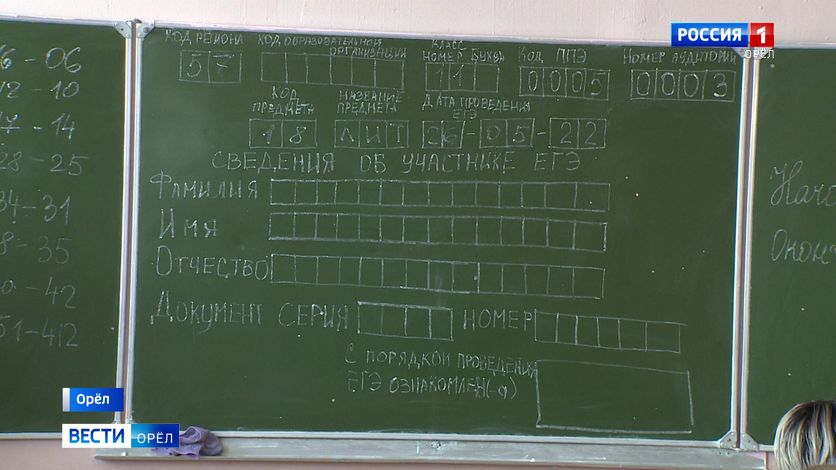 РОССИЯ 1
ОРЁЛ
КОД РЕГИОНА КОД ОБРАЗОВАТЕЛЬНОЙ ОРГАНИЗАЦИИ КЛАСС НОМЕР БУКВА КОД ППЭ НОМЕР АУДИТОРИИ
57 11 0005 0003
КОД ПРЕДМЕТА НАЗВАНИЕ ПРЕДМЕТА ДАТА ПРОВЕДЕНИЯ ЕГЭ
18 ЛИТ 26-05-22
СВЕДЕНИЯ ОБ УЧАСТНИКЕ ЕГЭ
ФАМИЛИЯ
ИМЯ
ОТЧЕСТВО
ДОКУМЕНТ СЕРИЯ НОМЕР
С ПОРЯДКОМ ПРОВЕДЕНИЯ
ЕГЭ ОЗНАКОМЛЕН(-а)
6-06
12-10
17-14
28-25
34-31
8-35
-42
51-412
Орёл
ВЕСТИ ОРЁЛ